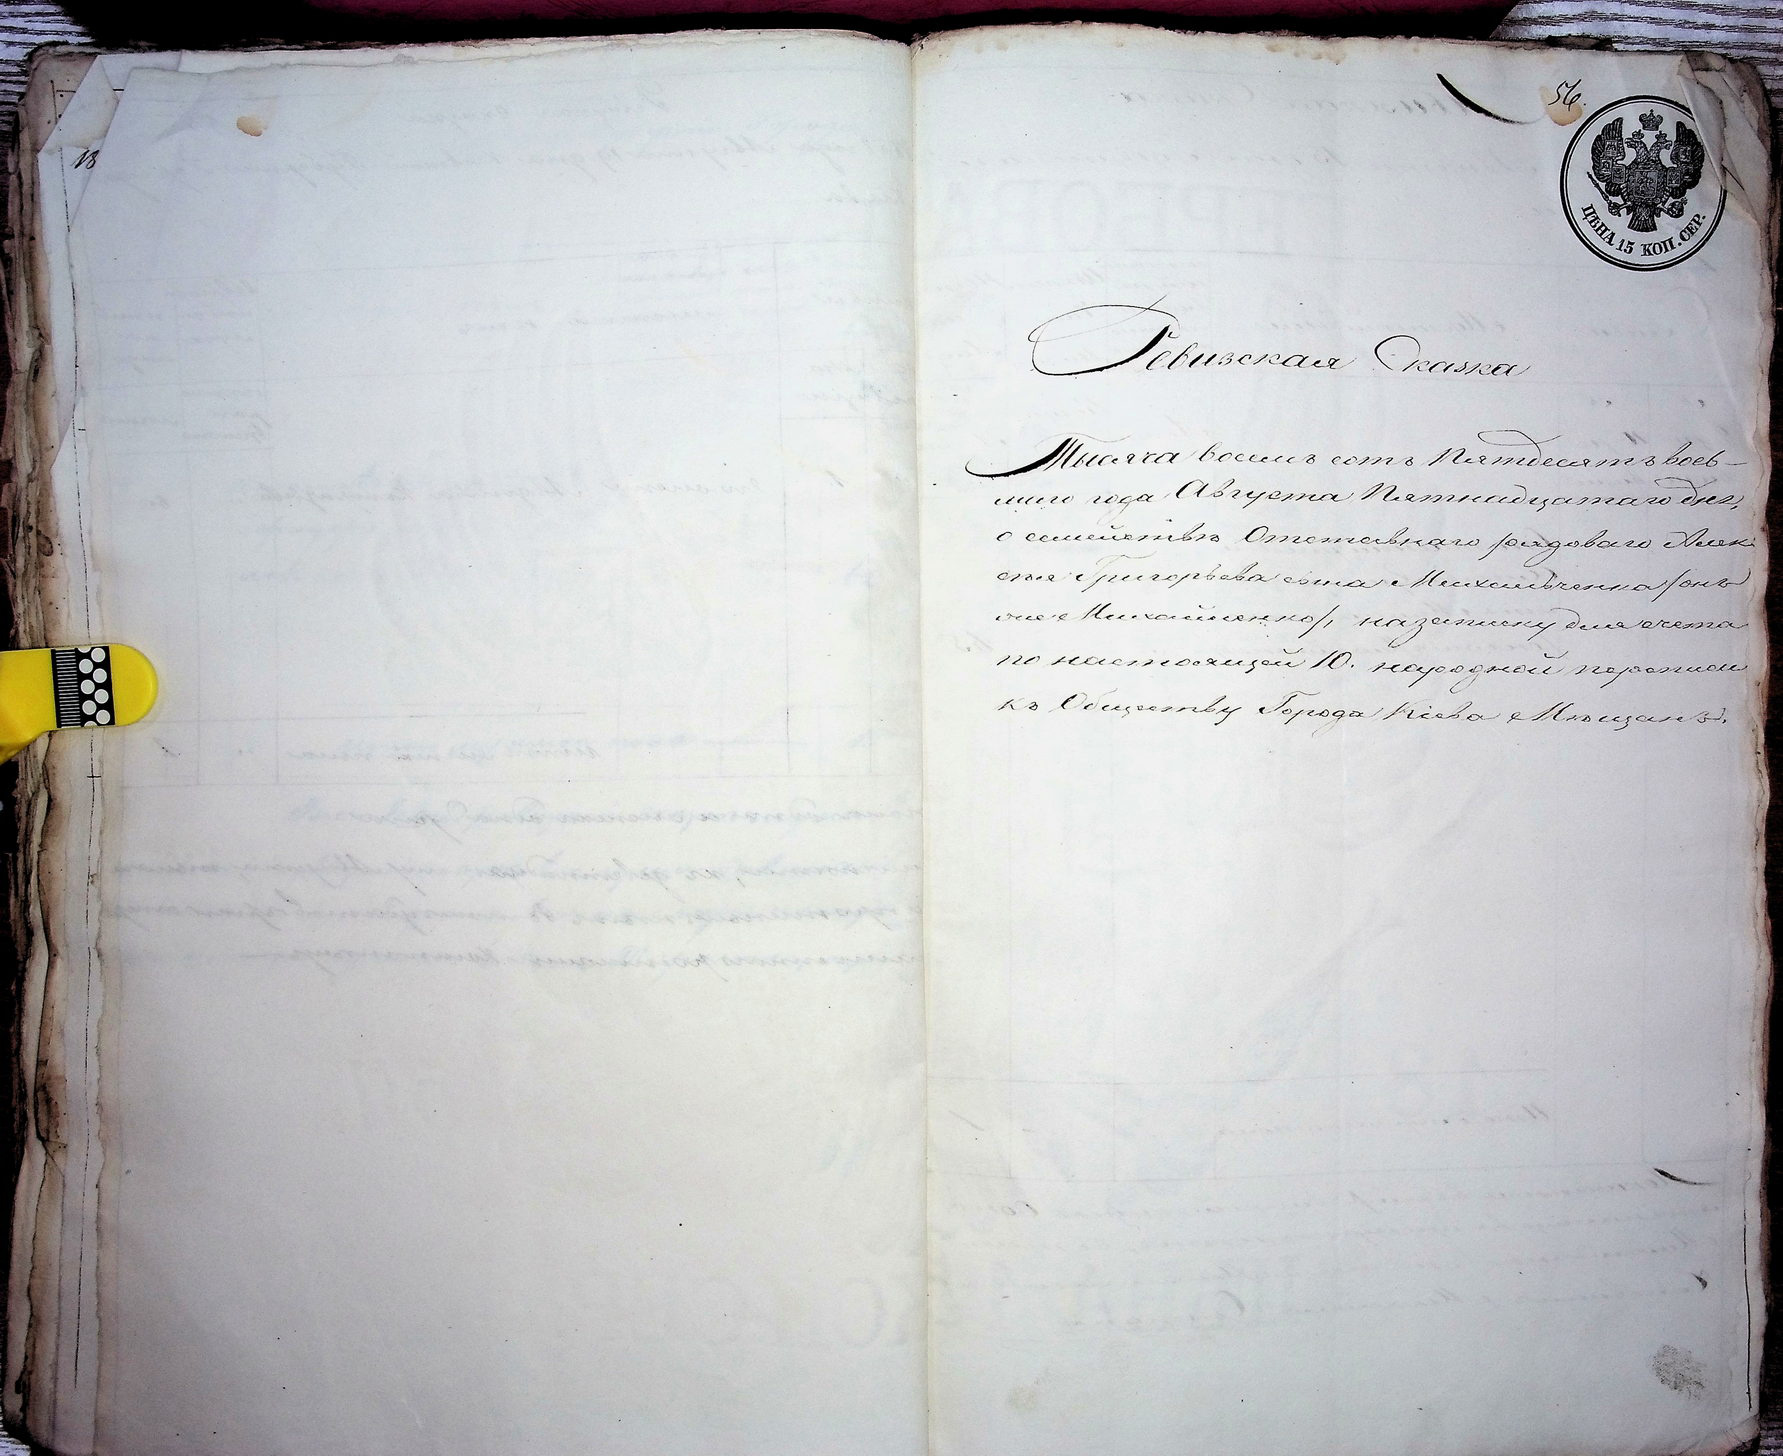 18
56.
ЦѢНА 15 КОП. СЕР.
Ревизская Сказка
Тысяча восемь сотъ Пятдесятъ вось-
маго года Августа Пятнадцатаго дня,
о семействѣ Отставнаго рядоваго Алек
сѣя Григорьева сына Михальченка /онъ
же Михайленко/, на записку для счета
по настоящей 10. народной переписи
къ Обществу Города Кіева Мѣщанъ.